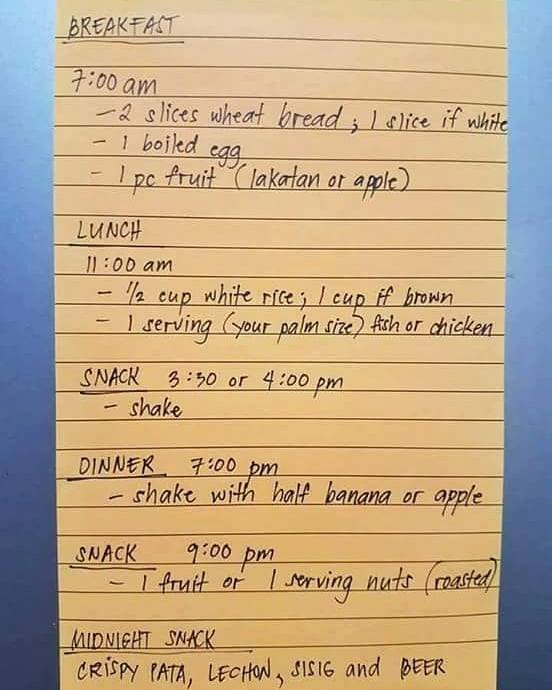 BREAKFAST
7:00 am
- 2 slices wheat bread ; 1 slice if white
- 1 boiled egg
- 1 pc fruit (lakatan or apple)
LUNCH
11:00 am
- 1/2 cup white rice ; 1 cup if brown
- 1 serving (your palm size) fish or chicken
SNACK 3:30 or 4:00 pm
- shake
DINNER 7:00 pm
- shake with half banana or apple
SNACK 9:00 pm
- 1 fruit or 1 serving nuts (roasted)
MIDNIGHT SNACK
CRISPY PATA, LECHON, SISIG and BEER